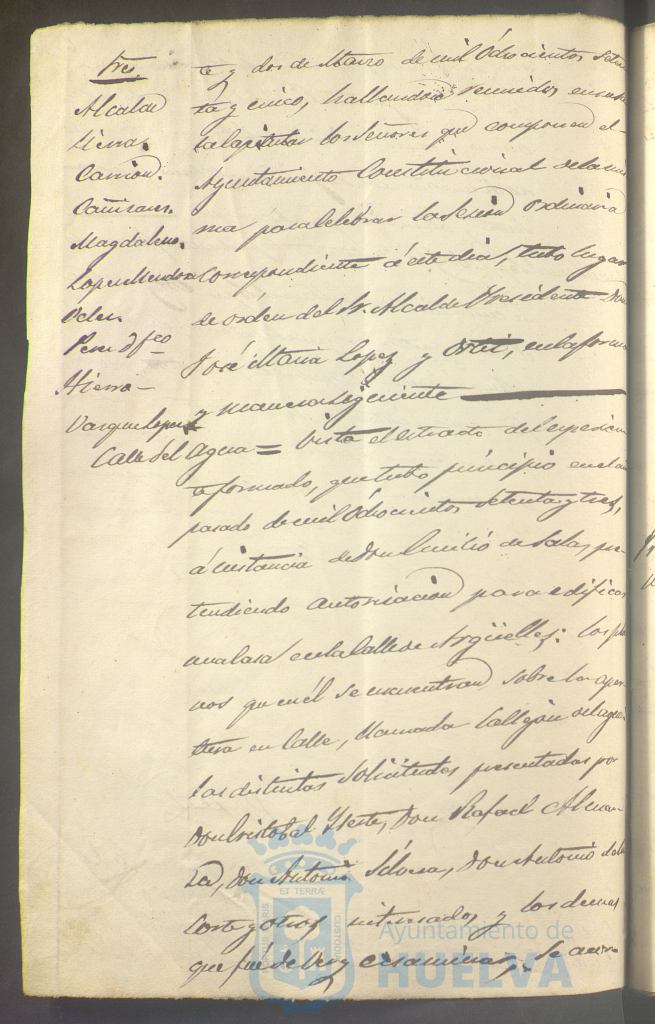 tres.
Alcalde
Sierra.
Carrion.
Cañizares.
Magdaleno.
Lopez Mendoza
Perez d fco
Hierro
Vazquez Lopez
te y dos de Marzo de mil Ochocientos seten
ta y cinco, hallandose reunidos en su
sala capitular los Señores que componen el
Ayuntamiento Constitucional de la mis
ma para celebrar la Sesion Ordinaria
correspondiente á este dia, tubo lugar
de orden del Sr. Alcalde Presidente Don
José Maria Lopez y Ortiz, en la forma
y manera siguiente
Calle del Agua = Vista el estracto del espedien
te formado, que tubo principio en el año
pasado de mil Ochocientos setenta y tres,
á instancia de Don Emilió de Salas, pre
tendiendo autorizacion para edificar
una casa en la Calle de Argüelles: los pla
nos que en él se encuentran sobre la aper
tura en Calle, llamada Callejon del agua
las distintas solicitudes presentadas por
Don Cristobal Yeste, Don Rafael
Don Antonio Don Antonio de la
Corte y otros interesados, y los demas
que fué de ver y examinar; Se acor
ET TERRÆ
CUSTODIA
Ayuntamiento de
HUELVA